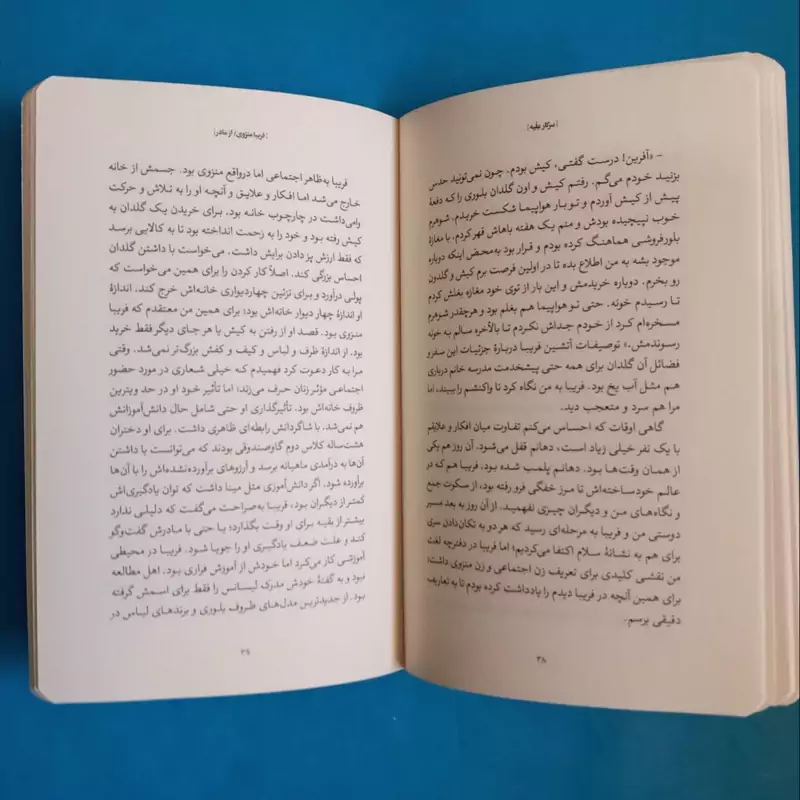 | سرکار علیه |
– «آفرین! درست گفتی، کیش بودم. چون نمی‌تونید حدس
بزنید خودم می‌گم. رفتم کیش و اون گلدان بلوری را که دفعهٔ
پیش از کیش آوردم و تو بار هواپیما شکست خریدم. شوهرم
خوب نپیچیده بودش و منم یک هفته باهاش قهر کردم. با مغازهٔ
بلورفروشی هماهنگ کرده بودم و قرار بود به‌محض اینکه دوباره
موجود بشه به من اطلاع بده تا در اولین فرصت برم کیش و گلدون
رو بخرم. دوباره خریدمش و این بار از توی خود مغازه بغلش کردم
تا رسیدم خونه. حتی تو هواپیما هم بغلم بود و هرچقدر شوهرم
مسخره‌ام کرد از خودم جداش نکردم تا بالأخره سالم به خونه
رسوندمش.» توصیفات آتشین فریبا دربارهٔ جزئیات این سفر و
فضائل آن گلدان برای همه حتی پیشخدمت مدرسه خانم درباری
هم مثل آب یخ بود. فریبا به من نگاه کرد تا واکنشم را ببیند، اما
مرا هم سرد و متعجب دید.
گاهی اوقات که احساس می‌کنم تفاوت میان افکار و علایقم
با یک نفر خیلی زیاد است، دهانم قفل می‌شود. آن روز هم یکی
از همان وقت‌ها بود. دهانم پلمب شده بود. فریبا هم که در
عالم خودساخته‌اش تا مرز خفگی فرو رفته بود، از سکوت جمع
و نگاه‌های من و دیگران چیزی نفهمید. از آن روز به بعد مسیر
دوستی من و فریبا به مرحله‌ای رسید که هر دو به تکان‌دادن سری
برای هم به نشانهٔ سلام اکتفا می‌کردیم؛ اما فریبا در دفترچه لغت
من نقشی کلیدی برای تعریف زن اجتماعی و زن منزوی داشت؛
برای همین آنچه در فریبا دیدم را یادداشت کرده بودم تا به تعاریف
دقیقی برسم.
۳۸
| فریبا منزوی/ از مادر |
فریبا به‌ظاهر اجتماعی اما درواقع منزوی بود. جسمش از خانه
خارج می‌شد اما افکار و علایق و آنچه او را به تلاش و حرکت
وامی‌داشت در چارچوب خانه بود. برای خریدن یک گلدان به
کیش رفته بود و خود را به زحمت انداخته بود تا به کالایی برسد
که فقط ارزش پز دادن برایش داشت. می‌خواست با داشتن گلدان
احساس بزرگی کند. اصلاً کار کردن را برای همین می‌خواست که
پولی درآورد و برای تزئین چهاردیواری خانه‌اش خرج کند. اندازهٔ
او اندازهٔ چهار دیوار خانه‌اش بود؛ برای همین من معتقدم که فریبا
منزوی بود. قصد او از رفتن به کیش یا هر جای دیگر فقط خرید
بود. از اندازهٔ ظرف و لباس و کیف و کفش بزرگ‌تر نمی‌شد. وقتی
مرا به کار دعوت کرد فهمیدم که خیلی شعاری در مورد حضور
اجتماعی مؤثر زنان حرف می‌زند؛ اما تأثیر خود او در حد ویترین
ظروف خانه‌اش بود. تأثیرگذاری او حتی شامل حال دانش‌آموزانش
هم نمی‌شد. با شاگردانش رابطه‌ای ظاهری داشت. برای او دختران
هشت‌ساله کلاس دوم گاوصندوقی بودند که می‌توانست با داشتن
آن‌ها به درآمدی ماهیانه برسد و آرزوهای برآورده‌نشده‌اش را با آن‌ها
برآورده شود. اگر دانش‌آموزی مثل مینا داشت که توان یادگیری‌اش
کمتر از دیگران بود، فریبا به‌صراحت می‌گفت که دلیلی ندارد
بیشتر از بقیه برای او وقت بگذارد؛ یا حتی با مادرش گفت‌وگو
کند و علت ضعف یادگیری او را جویا شود. فریبا در محیطی
آموزشی کار می‌کرد اما خودش از آموزش فراری بود. اهل مطالعه
نبود و به گفتهٔ خودش مدرک لیسانس را فقط برای اسمش گرفته
بود. از جدیدترین مدل‌های ظروف بلوری و برندهای لباس در
۳۹